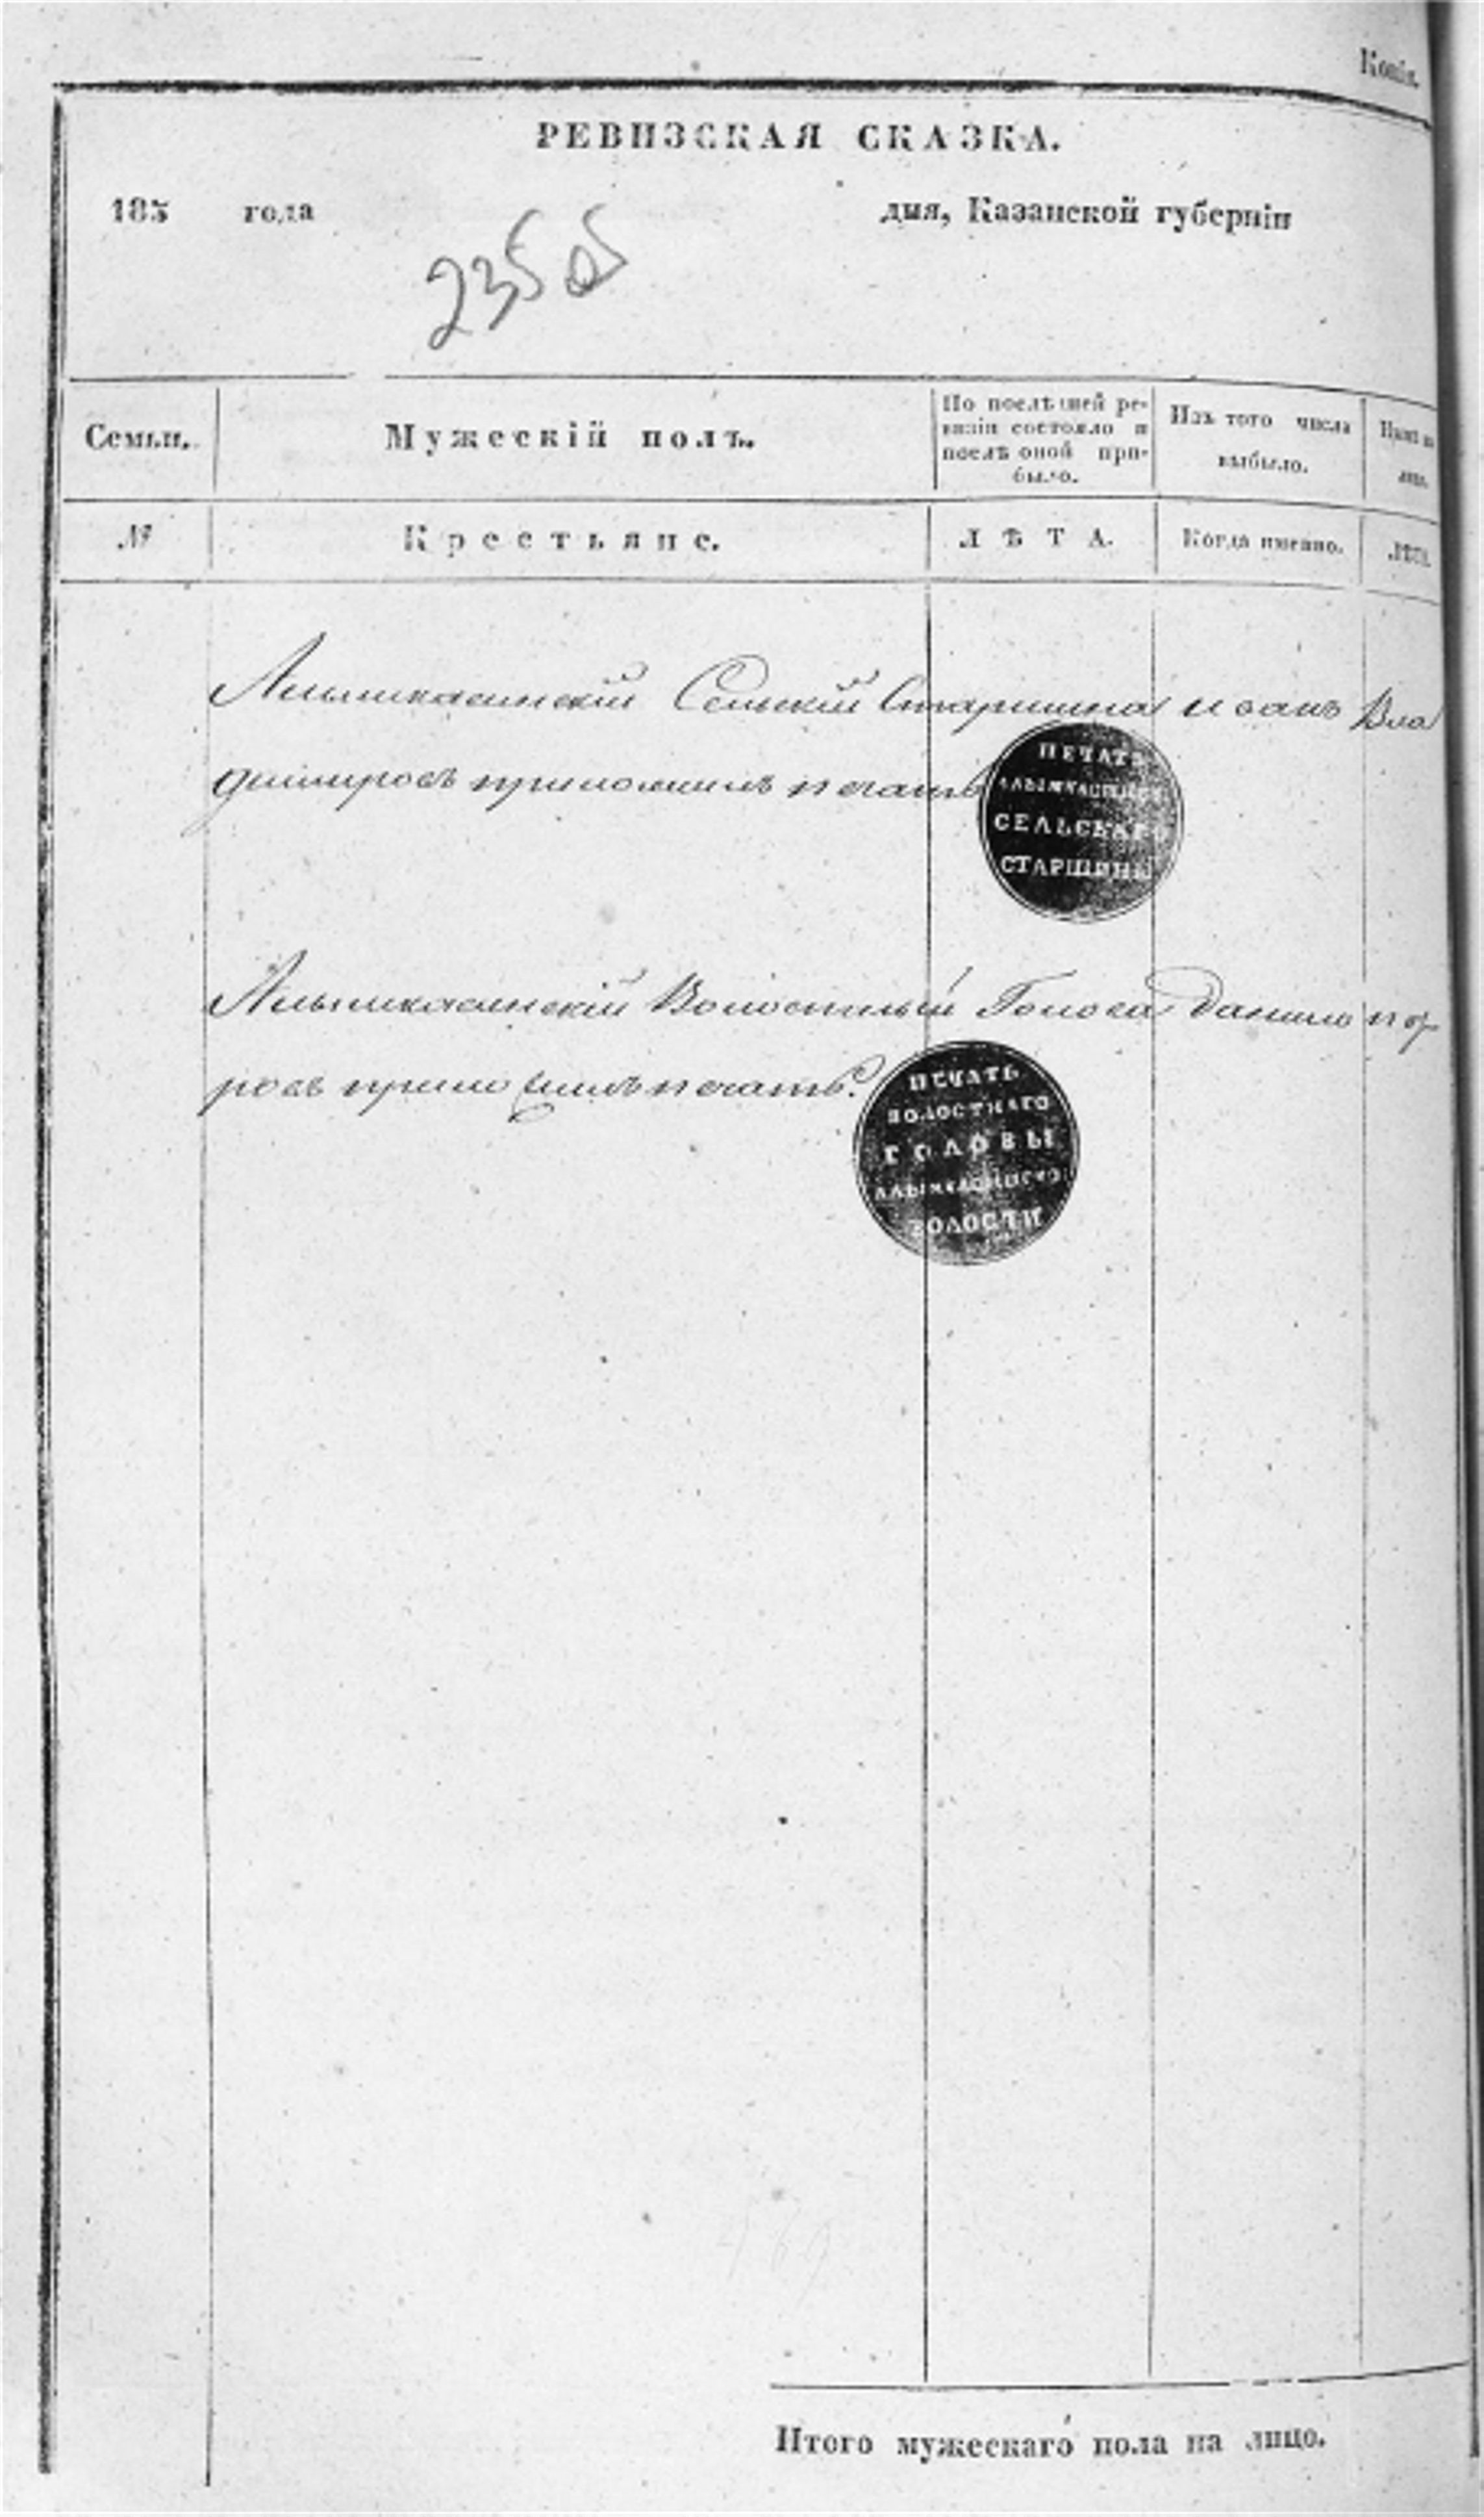 Копія.
РЕВИЗСКАЯ СКАЗКА.
185 года дня, Казанской губерніи
235 об
Семьи. Мужескій полъ. По послѣдней ревизіи состояло и послѣ оной прибыло. Изъ того числа выбыло.
№ Крестьяне. ЛѢТА. Когда именно. Лѣта.
Алымкасинскій Сельскій Старшина Иванъ Вла
димировъ приложилъ печать
ПЕЧАТЬ
АЛЫМКАСИНСКАГО
СЕЛЬСКАГО
СТАРШИНЫ
Алымкасинскій Волостный Голова Данило
ровъ приложилъ печать.
ПЕЧАТЬ
ВОЛОСТНАГО
ГОЛОВЫ
АЛЫМКАСИНСКОЙ
ВОЛОСТИ
Итого мужескаго пола на лицо.